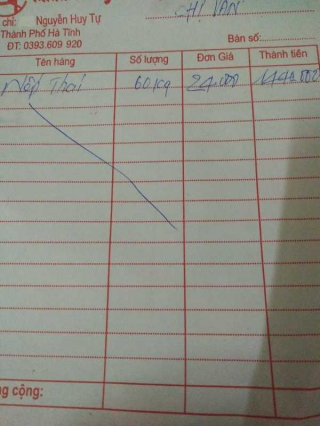 chỉ: Nguyễn Huy Tự
CHỊ VÂN
Thành Phố Hà Tĩnh
Bàn số:
ĐT: 0393.609 920
Tên hàng Số lượng Đơn Giá Thành tiền
Nếp Thái 60kg 24.000 1440.000
ng cộng: